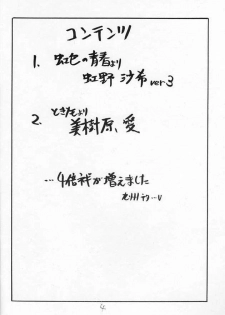 コンテンツ
1. 虹色の青春より
虹野 沙希 ver3
2. ときメモより
美樹原 愛
…4倍 が増えました
4